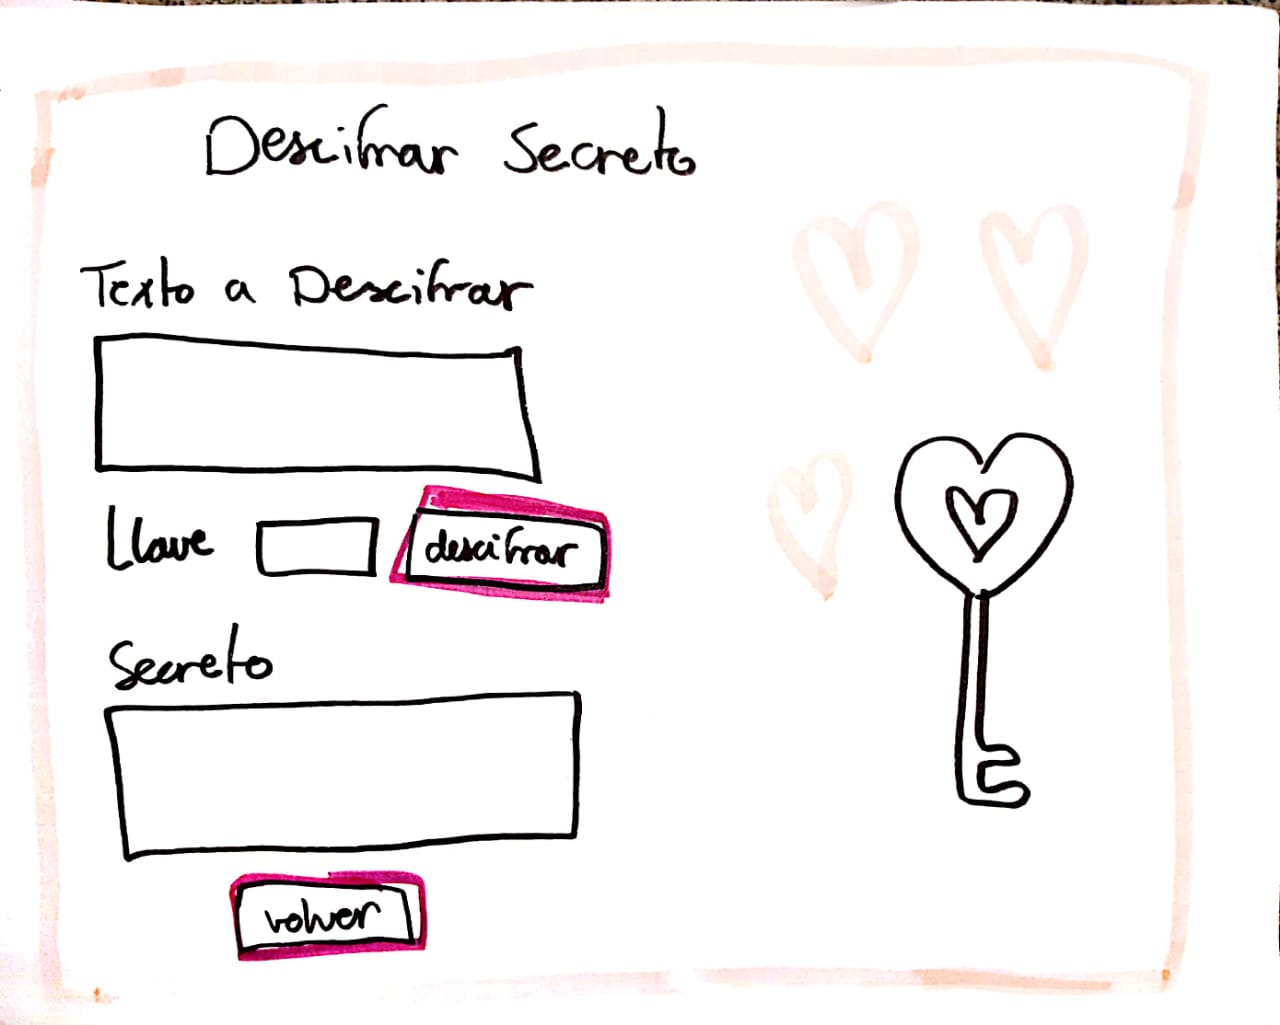 Descifrar Secreto
Texto a Descifrar
Llave
descifrar
Secreto
volver